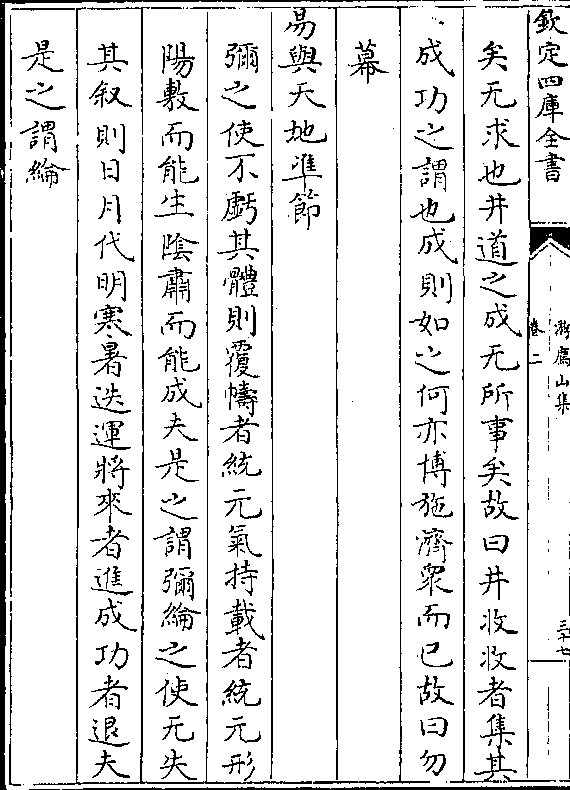 欽定四庫全書
游廌山集
卷二
三十七
矣无求也井道之成无所事矣故曰井收收者集其
成功之謂也成則如之何亦博施濟衆而已故曰勿
幕
易與天地準節
彌之使不虧其體則覆幬者統元氣持載者統元形
陽敷而能生陰肅而能成夫是之謂彌綸之使无失
其叙則日月代明寒暑迭運將來者進成功者退夫
是之謂綸